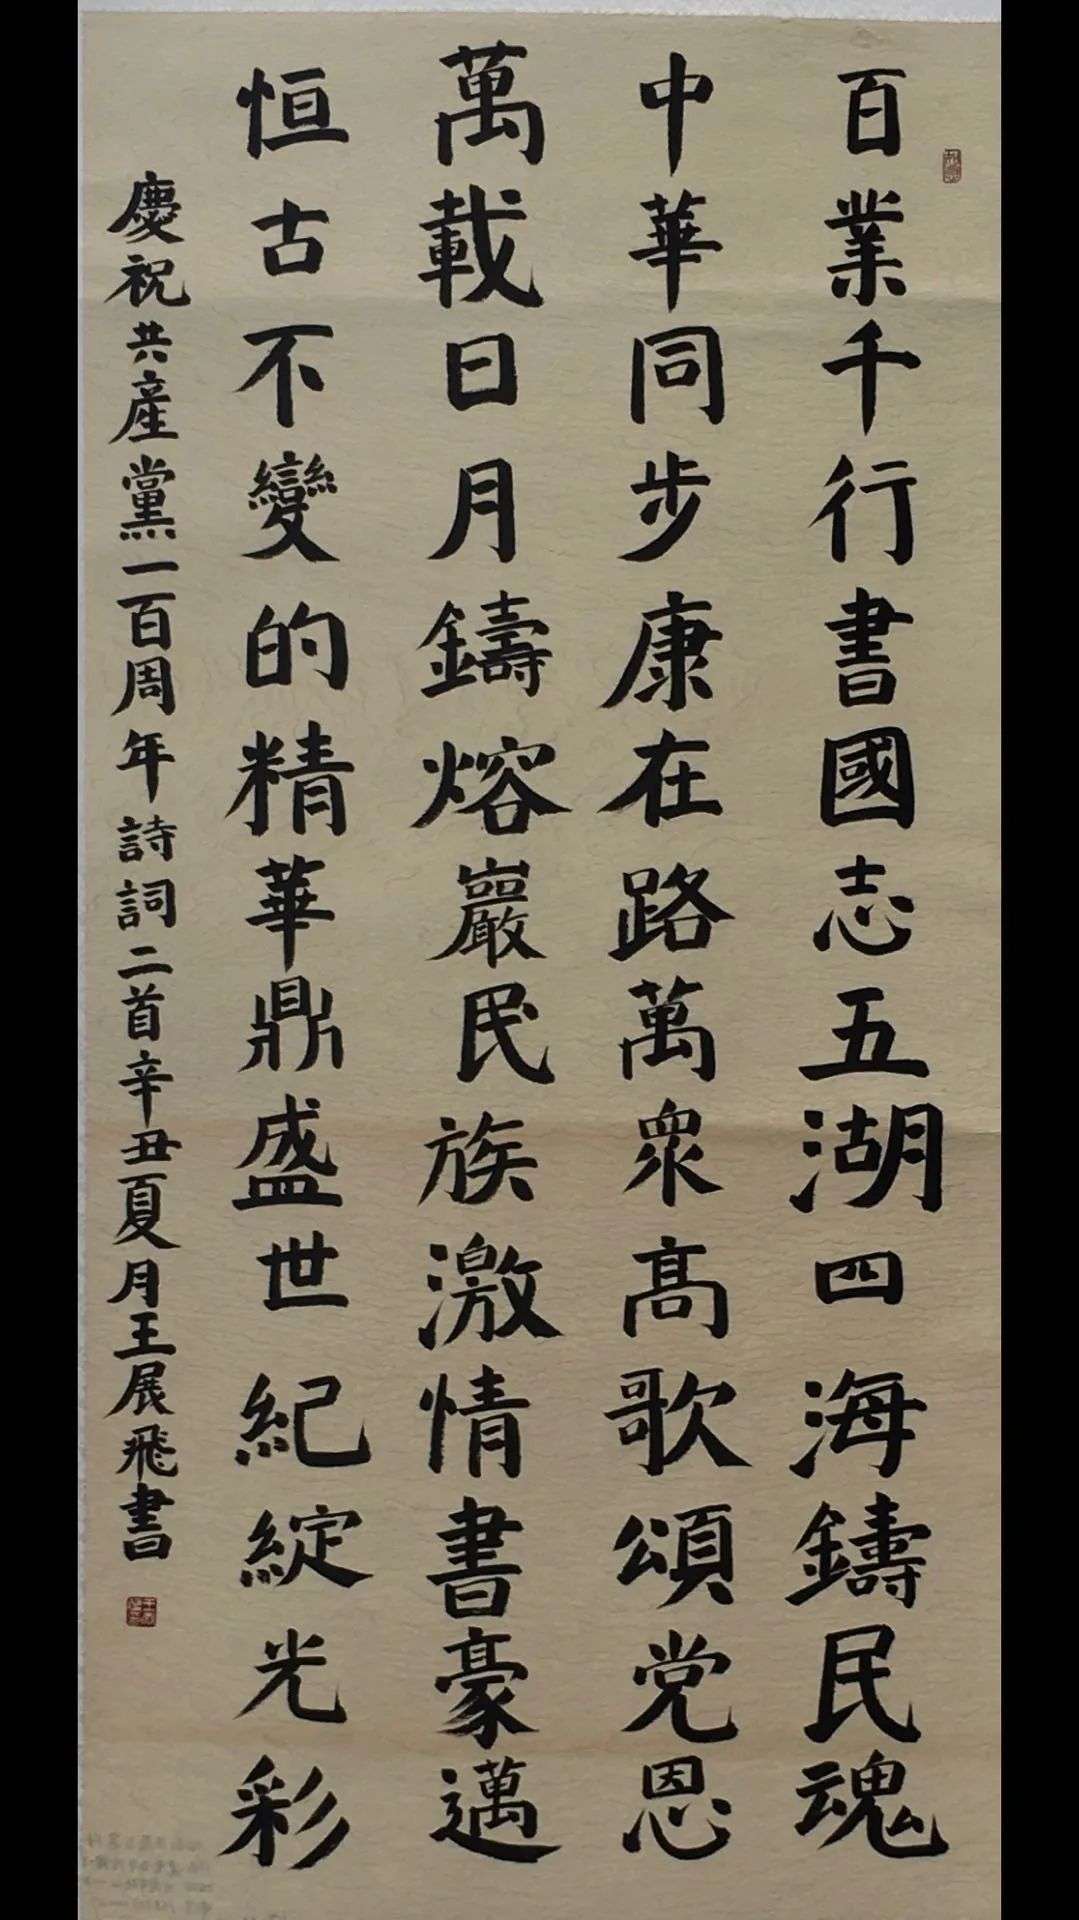 百業千行書國志五湖四海鑄民魂
中華同步康在路萬眾高歌頌党恩
萬載日月鑄熔巖民族激情書豪邁
恒古不變的精華鼎盛世紀綻光彩
慶祝共產黨一百周年詩詞二首辛丑夏月王展飛書